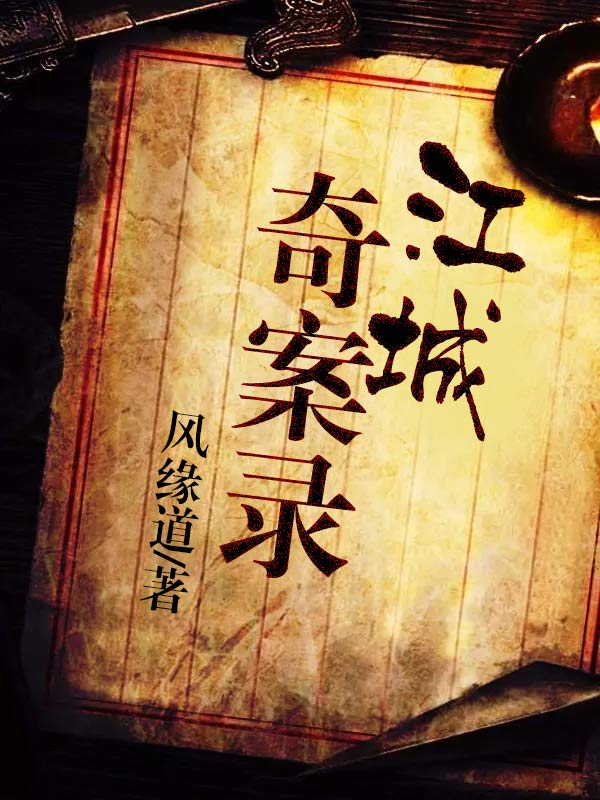 江城
奇案录
风缘道/著